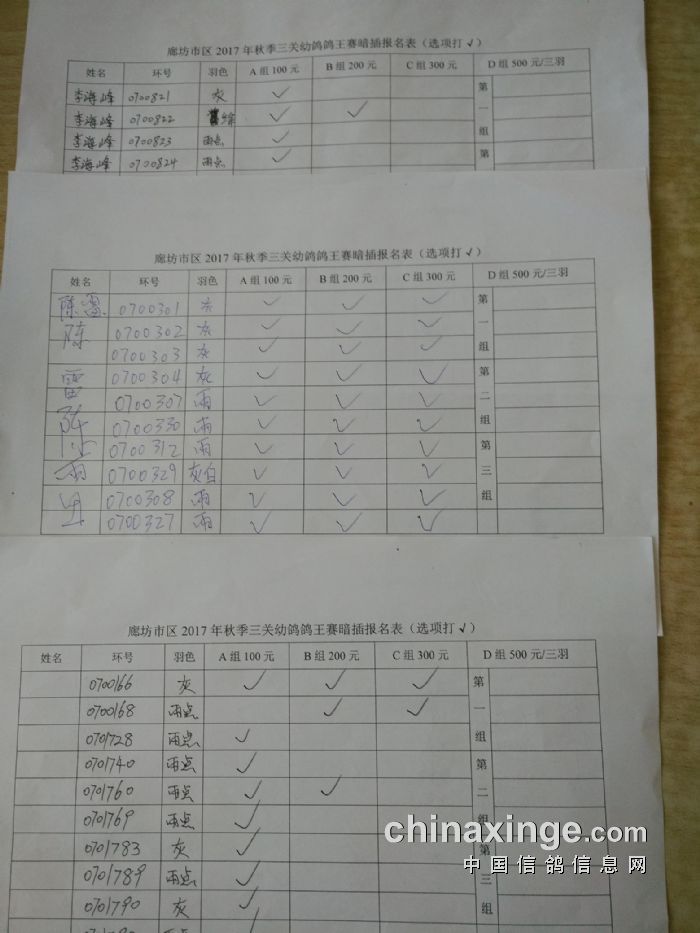 廊坊市区 2017 年秋季三关幼鸽鸽王赛暗插报名表（选项打 √）
姓名 环号 羽色 A 组 100 元 B 组 200 元 C 组 300 元 D 组 500 元/三羽
李海峰 0700821 灰 ✓ 第
李海峰 0700822 ✓ ✓ 一
李海峰 0700823 雨点 ✓ 组
李海峰 0700824 雨点 ✓ 第
廊坊市区 2017 年秋季三关幼鸽鸽王赛暗插报名表（选项打 √）
姓名 环号 羽色 A 组 100 元 B 组 200 元 C 组 300 元 D 组 500 元/三羽
陈 0700301 灰 ✓ ✓ ✓ 第
陈 0700302 灰 ✓ ✓ ✓ 一
0700303 灰 ✓ ✓ ✓ 组
雷 0700304 灰 ✓ ✓ ✓ 第
0700307 雨 ✓ ✓ ✓ 二
陈 0700330 雨 ✓ ✓ ✓ 组
0700312 雨 ✓ ✓ ✓ 第
雨 0700329 灰白 ✓ ✓ ✓ 三
0700308 雨 ✓ ✓ ✓ 组
0700327 雨 ✓ ✓ ✓
廊坊市区 2017 年秋季三关幼鸽鸽王赛暗插报名表（选项打 √）
姓名 环号 羽色 A 组 100 元 B 组 200 元 C 组 300 元 D 组 500 元/三羽
0700166 灰 ✓ ✓ ✓ 第
0700168 雨点 ✓ ✓ 一
0701728 雨点 ✓ 组
0701740 雨点 ✓ 第
0701760 雨点 ✓ ✓ 二
0701769 雨点 ✓ 组
0701783 灰 ✓ 第
0701789 雨点 ✓ 三
0701790 灰 ✓ 组
chinaxinge.com
中国信鸽信息网